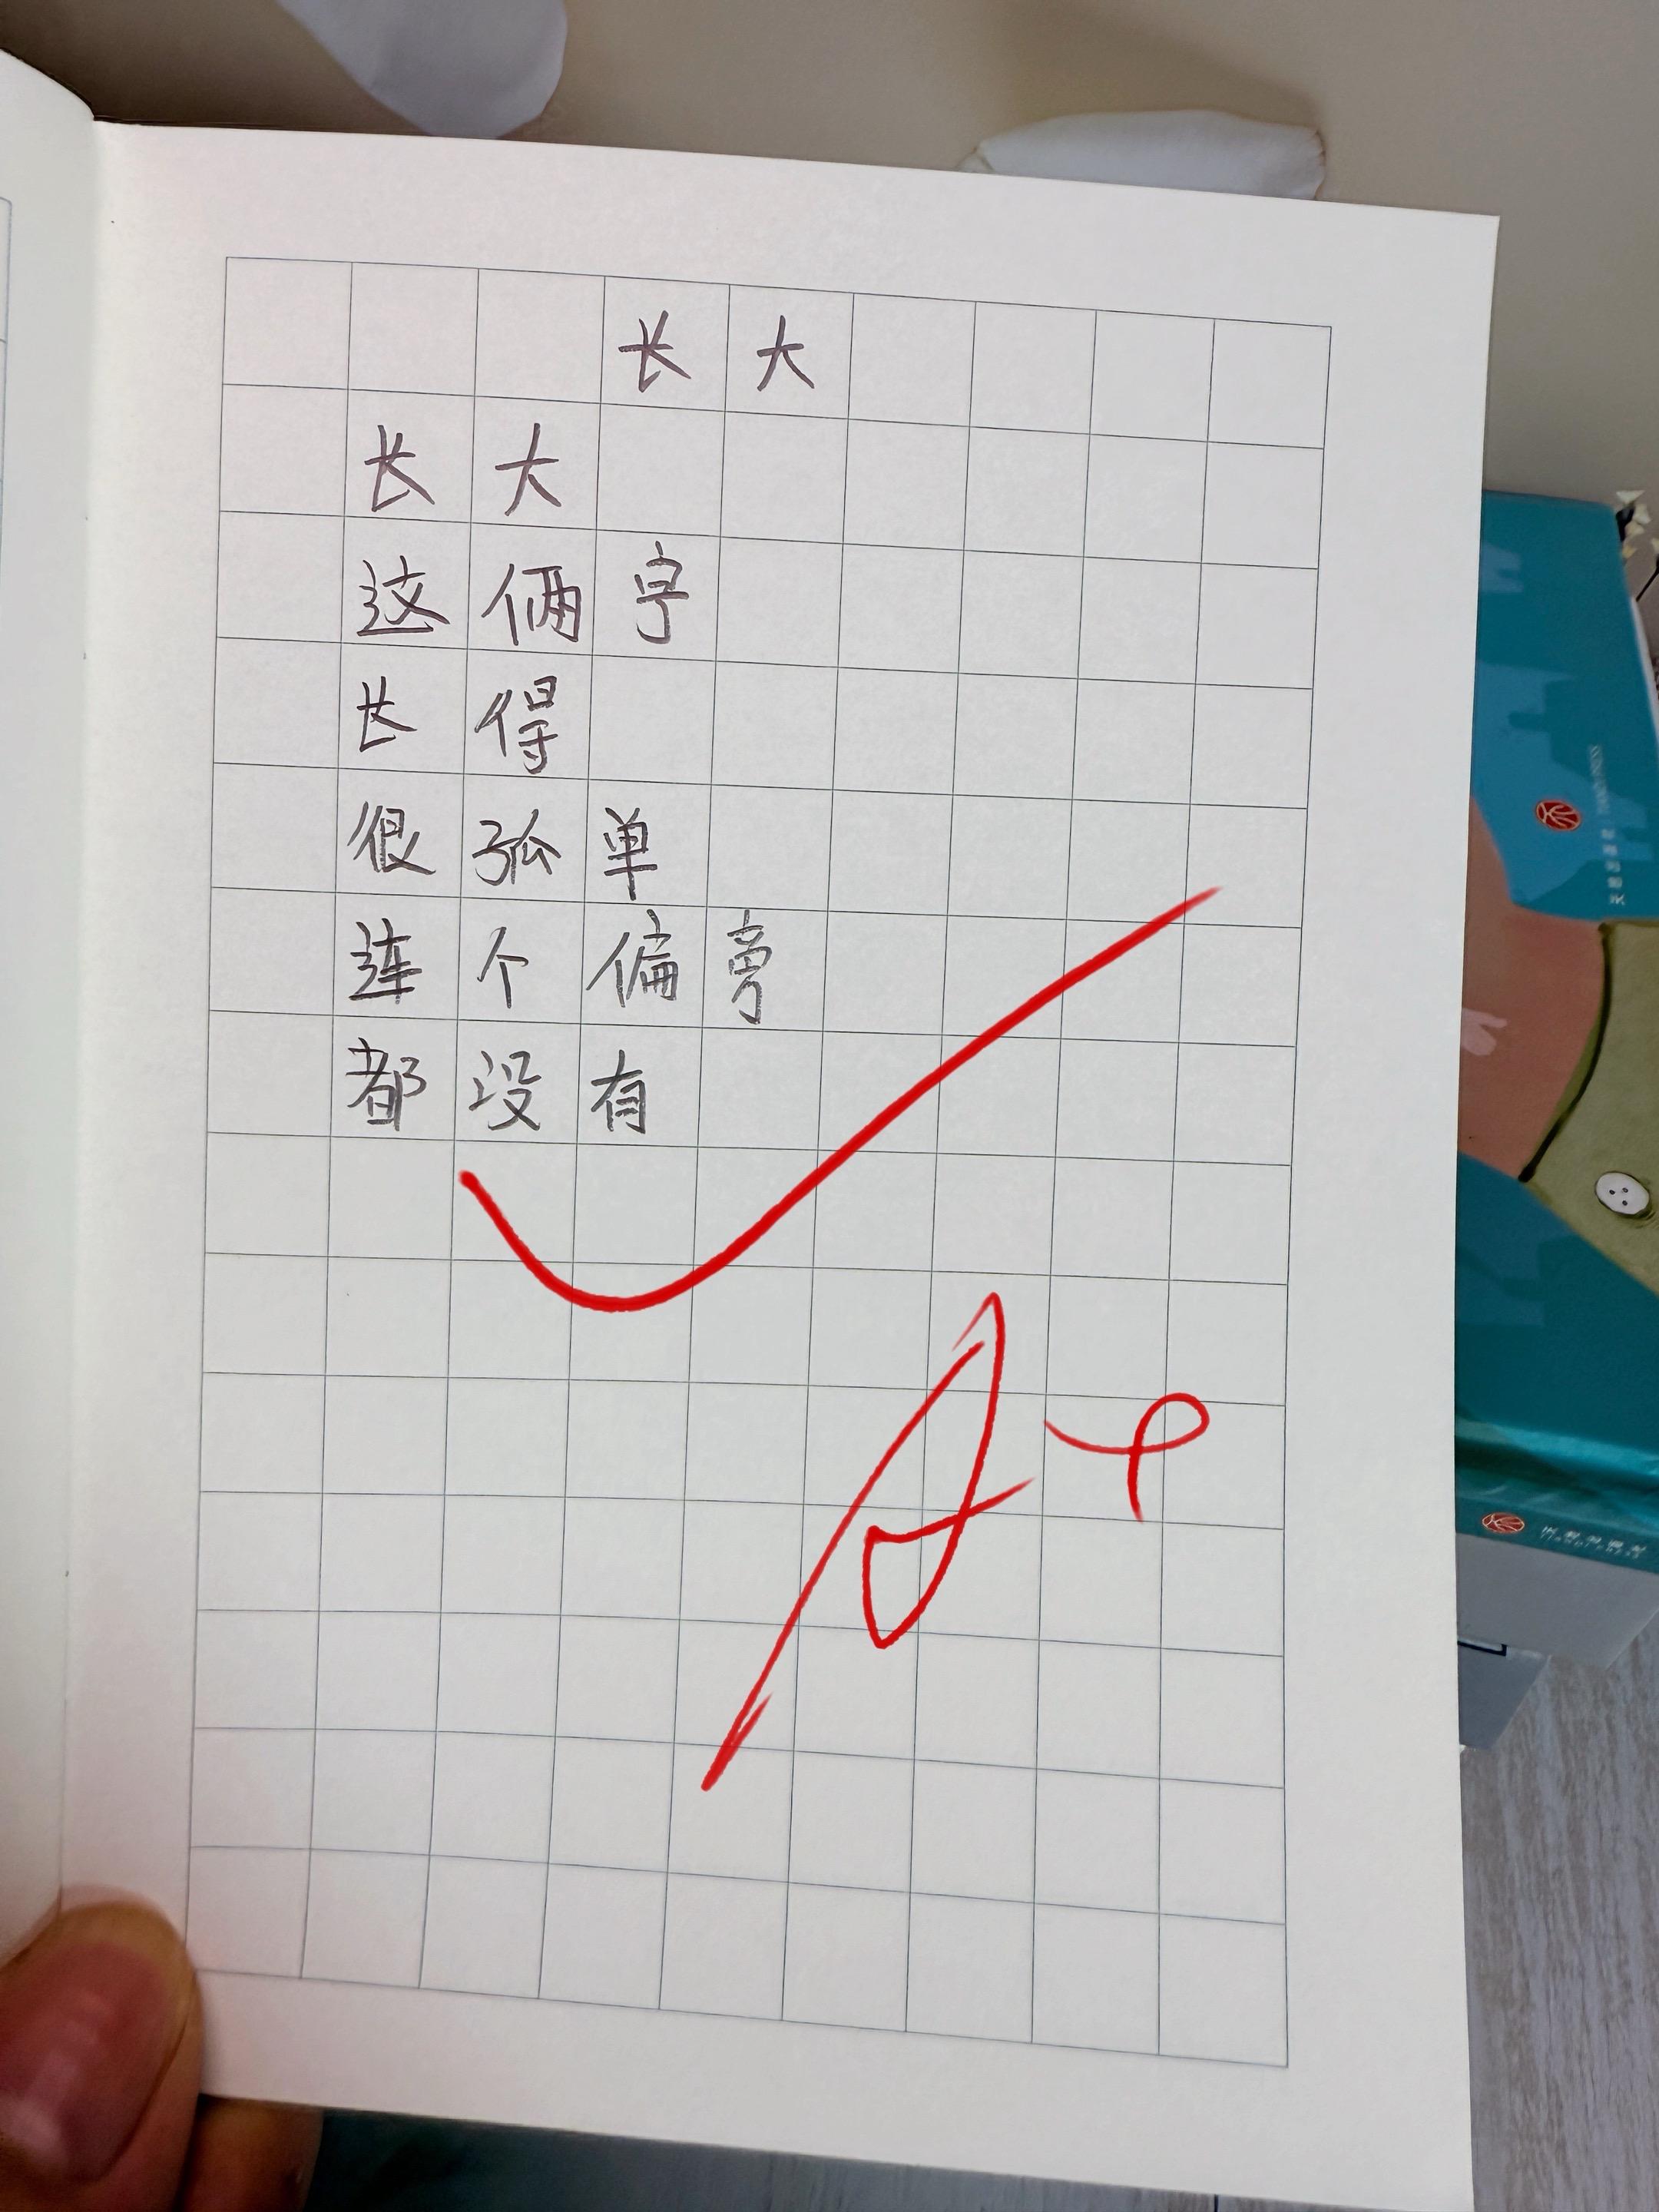 长大
长大
这俩字
长得
很孤单
连个偏旁
都没有
A+